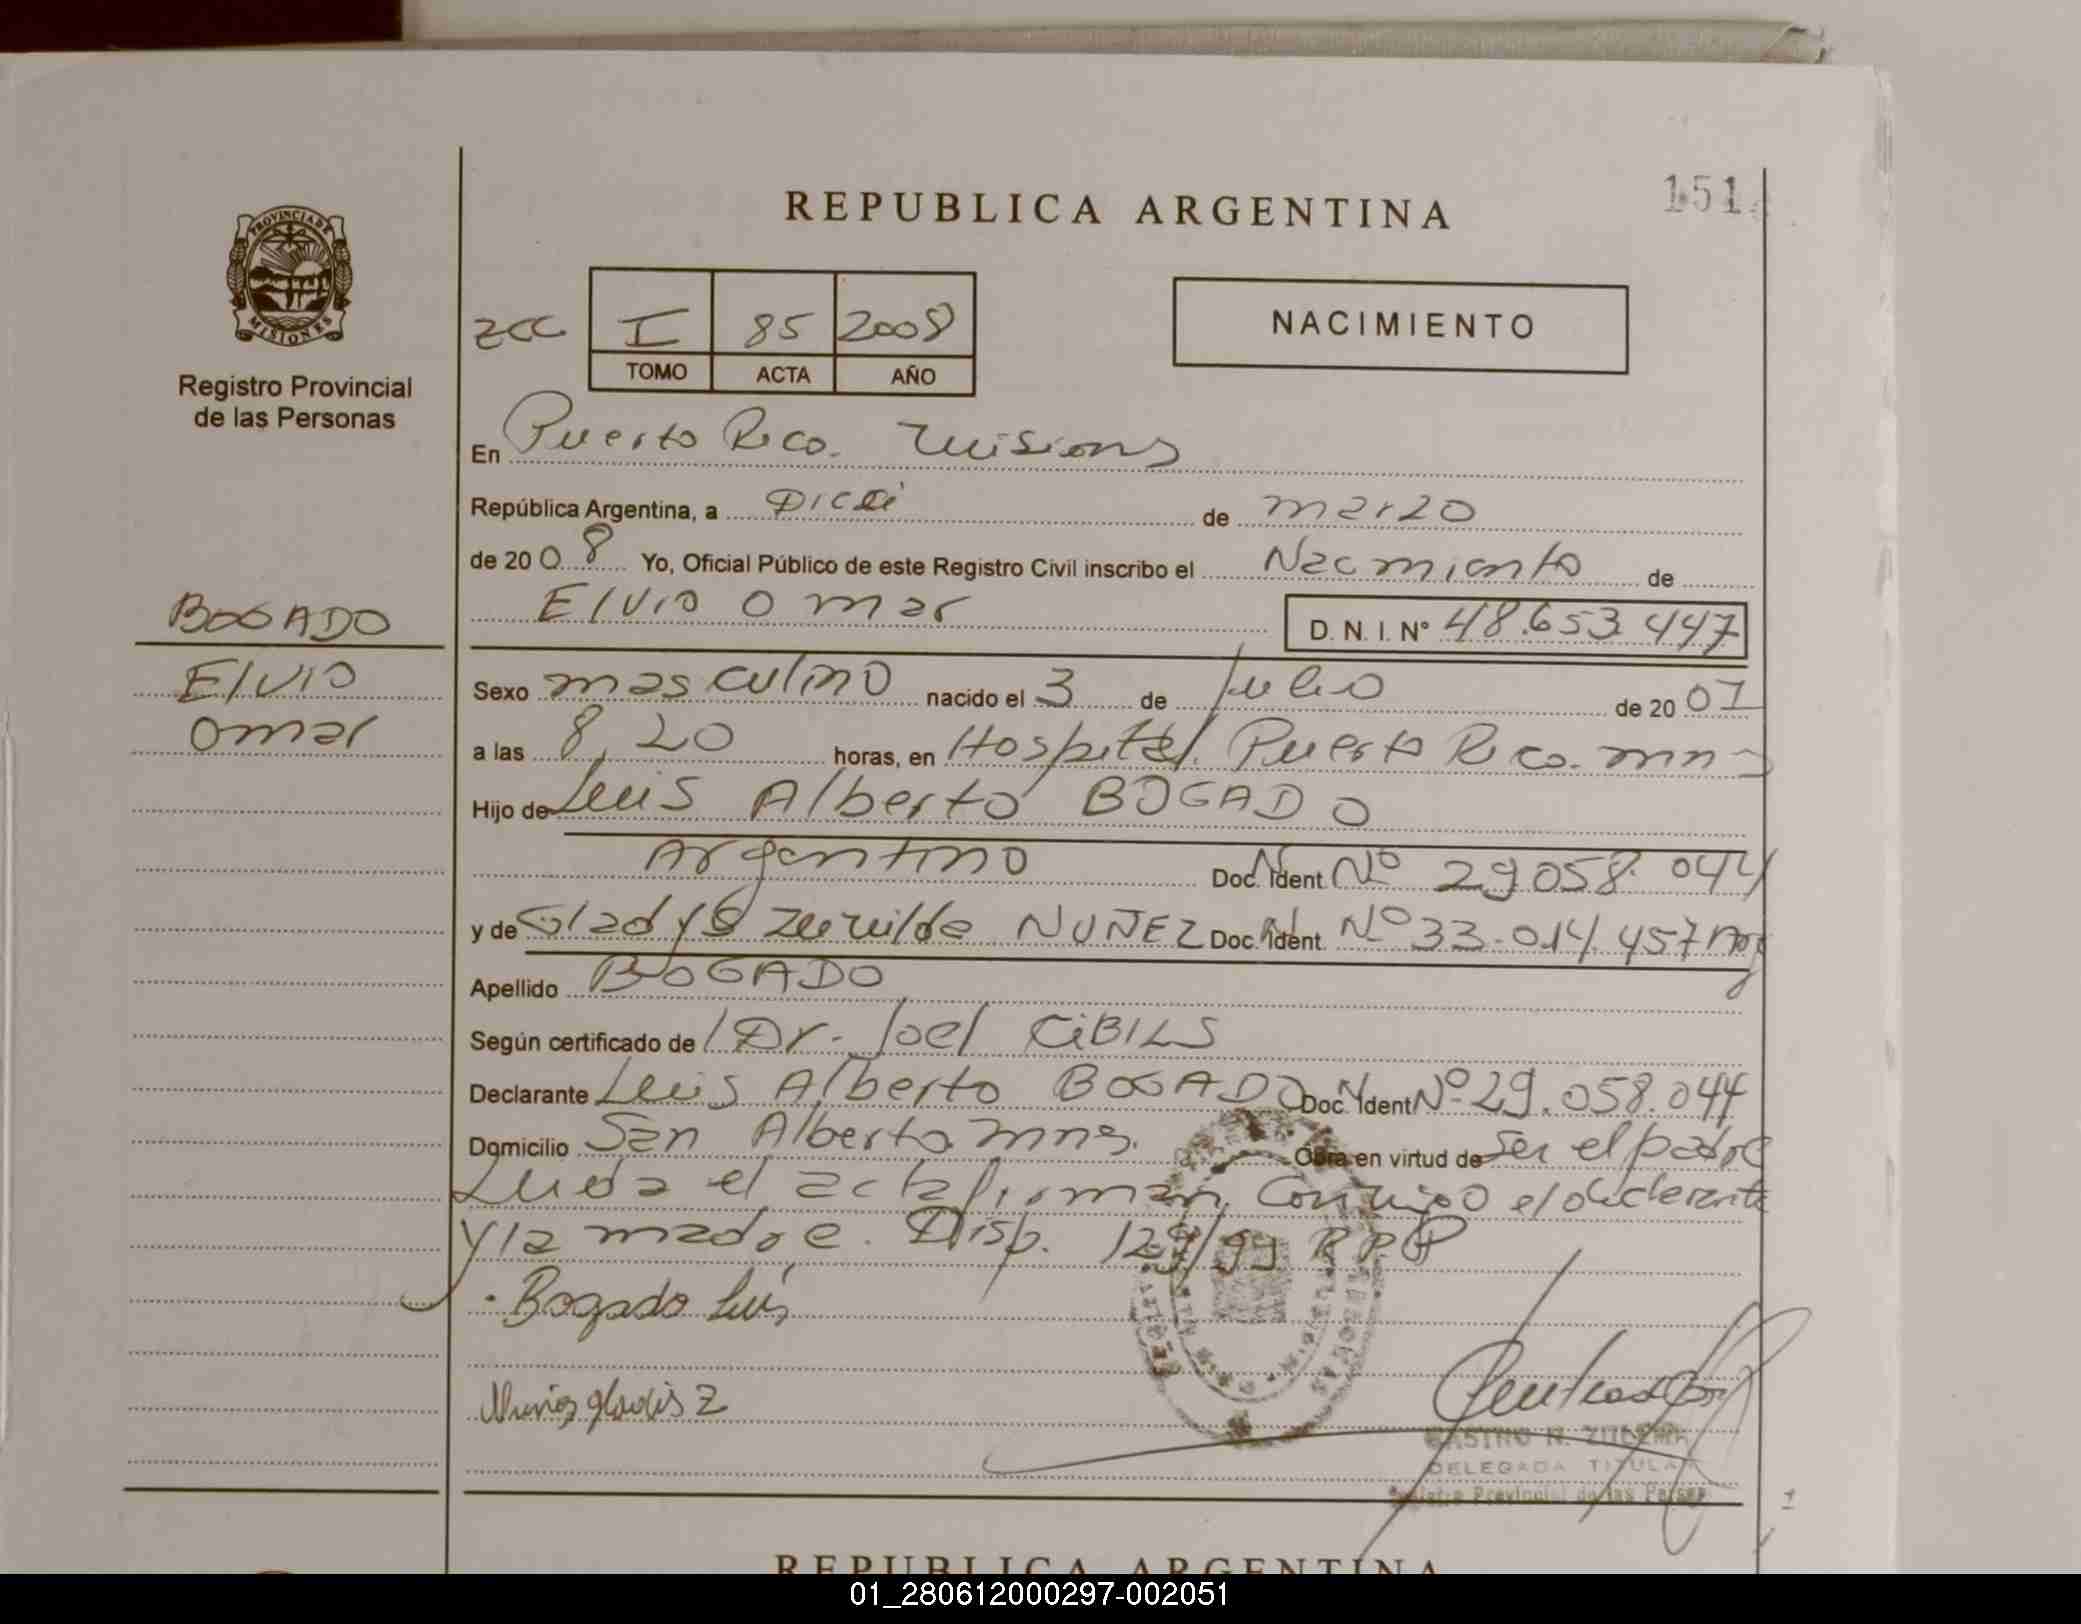 151
REPUBLICA ARGENTINA
PROVINCIA DE
MISIONES
Registro Provincial
de las Personas
I 85 2008
TOMO ACTA AÑO
NACIMIENTO
En Puerto Rico. Misiones
República Argentina, a Diez de marzo
de 2008 Yo, Oficial Público de este Registro Civil inscribo el Nacimiento de
Elvio Omar D. N. I. Nº 48.653.447
BOGADO
Elvio
Omar
Sexo masculino nacido el 3 de Julio de 2007
a las 8,20 horas, en Hospital. Puerto Rico. mns
Hijo de Luis Alberto BOGADO
Argentino Doc. N. Ident. Nº 29.058.044
y de Gladys Zunilda NUÑEZ Doc. N. Ident. Nº 33.014.457 Arg
Apellido BOGADO
Según certificado de Dr. Joel CiBILS
Declarante Luis Alberto BOGADO Doc. N. Ident Nº 29.058.044
Domicilio San Alberto mns. Obra en virtud de ser el padre
Leida el acta firman conmigo el declarante
y la madre. Disp. 129/99 RPP
Bogado Luis
Nuñes gladis Z
CASTRO N. ZULEMA
DELEGADA TITULAR
Registro Provincial de las Person
REPUBLICA ARGENTINA
01_280612000297-002051